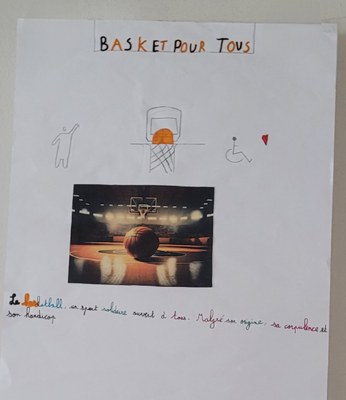 BASKET POUR TOUS
Le Basketball, un sport solidaire ouvert à tous. Malgré son origine, sa corpulence et
son handicap